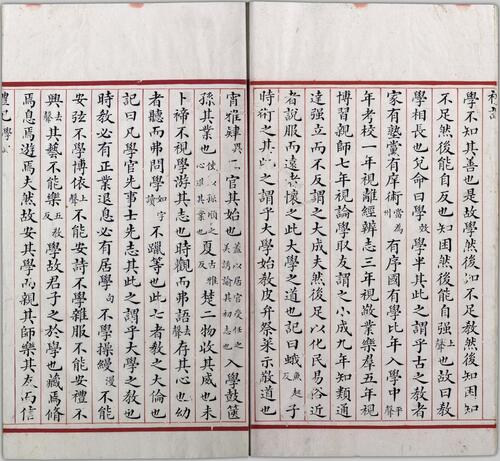 學不知其善也是故學然後知不足敎然後知困知
不足然後能自反也知困然後能自強上聲也故曰敎
學相長也兌命曰學斆學半其此之謂乎古之敎者
家有塾黨有庠術當為州有序國有學比年入學中平聲
年考校一年視離經辨志三年視敬業樂羣五年視
博習親師七年視論學取友謂之小成九年知類通
達強立而不反謂之大成夫然後足以化民易俗近
者說服而遠者懷之此大學之道也記曰蛾魚起反子
時術之其此之謂乎大學始敎皮弁祭菜示敬道也
宵雅肄異二官其始也蓋以居官受任之美誘諭其初志也入學鼓篋
孫其業也使以孫順之心進其業也夏古雅反楚二物收其威也未
卜禘不視學游其志也時觀而弗語去聲存其心也幼
者聽而弗問學如字讀不躐等也此七者敎之大倫也
記曰凡學官先事士先志其此之謂乎大學之敎也
時敎必有正業退息必有居學向不學操縵漫不能
安弦不學博依上聲不能安詩不學雜服不能安禮不
興去聲其藝不能樂五敎反學故君子之於學也藏焉脩
焉息焉遊焉夫然故安其學而親其師樂其友而信
禮記學